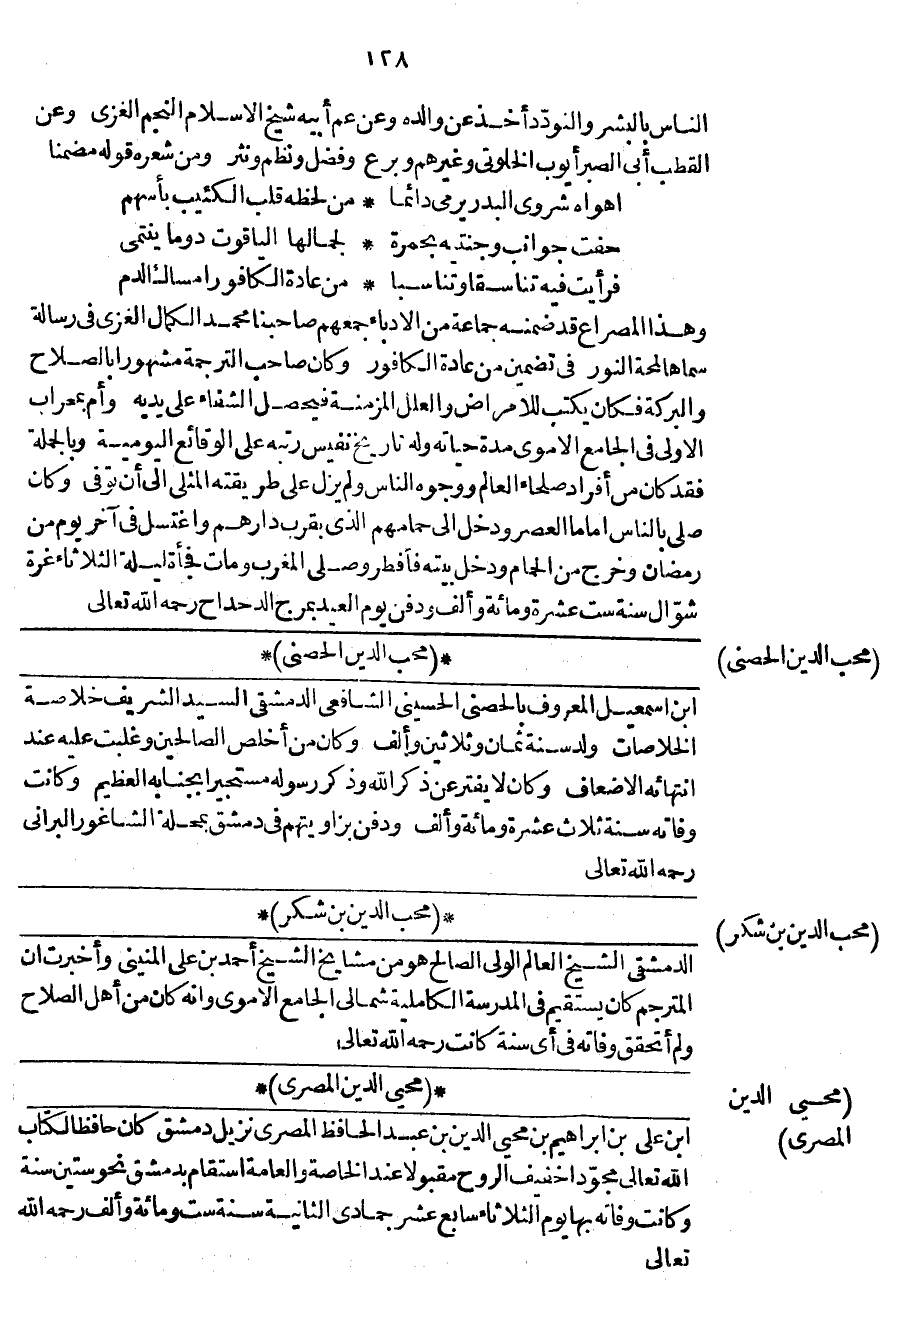 ١٢٨
الناس بالبشر والتودّد أخذ عن والده وعن عم أبيه شيخ الاسلام النجم الغزى وعن
القطب أبى الصبر أيوب الخلوتى وغيرهم وبرع وفضل ونظم ونثر ومن شعره قوله مضمنا
اهواه شروى البدر يرمى دائما * من لحظه قلب الكئيب بأسهم
حفت جوانب وجنتيه بحمرة * لجمالها الياقوت دوما ينتمى
فرأيت فيه تناسقا وتناسبا * من عادة الكافور امساك الدم
وهذا المصراع قد ضمنه جماعة من الادباء جمعهم صاحبنا محمد الكمال الغزى فى رسالة
سماها لمحة النور فى تضمين من عادة الكافور وكان صاحب الترجمة مشهورا بالصلاح
والبركة فكان يكتب للامراض والعلل المزمنة فيحصل الشفاء على يديه وأم بمحراب
الاولى فى الجامع الاموى مدة حياته وله تاريخ نفيس رتبه على الوقائع اليومية وبالجملة
فقد كان من أفراد صلحاء العالم ووجوه الناس ولم يزل على طريقته المثلى الى أن توفى وكان
صلى بالناس اماما العصر ودخل الى حمامهم الذى بقرب دارهم واغتسل فى آخر يوم من
رمضان وخرج من الحمام ودخل بيته فأفطر وصلى المغرب ومات فجأة ليلة الثلاثاء غرة
شوّال سنة ست عشرة ومائة وألف ودفن يوم العيد بمرج الدحداح رحمه الله تعالى
*(محب الدين الحصنى)*
(محب الدين الحصنى)
ابن اسمعيل المعروف بالحصنى الحسينى الشافعى الدمشقى السيد الشريف خلاصة
الخلاصات ولد سنة ثمان وثلاثين وألف وكان من أخلص الصالحين وغلبت عليه عند
انتهائه الاضعاف وكان لا يفتر عن ذكر الله وذكر رسوله مستجيرا بجنابه العظيم وكانت
وفاته سنة ثلاث عشرة ومائة وألف ودفن بزاويتهم فى دمشق بمحلة الشاغور البرانى
رحمه الله تعالى
*(محب الدين بن شكر)*
(محب الدين بن شكر)
الدمشقى الشيخ العالم الولى الصالح هو من مشايخ الشيخ أحمد بن على المنينى وأخبرت ان
المترجم كان يستقيم فى المدرسة الكاملية شمالى الجامع الاموى وانه كان من أهل الصلاح
ولم أتحقق وفاته فى أى سنة كانت رحمه الله تعالى
*(محيى الدين المصرى)*
(محيى الدين
المصرى)
ابن على بن ابراهيم بن محيى الدين بن عبد الحافظ المصرى نزيل دمشق كان حافظا لكتاب
الله تعالى مجوّدا خفيف الروح مقبولا عند الخاصة والعامة استقام بدمشق نحو ستين سنة
وكانت وفاته بها يوم الثلاثاء سابع عشر جمادى الثانية سنة ست ومائة وألف رحمه الله
تعالى